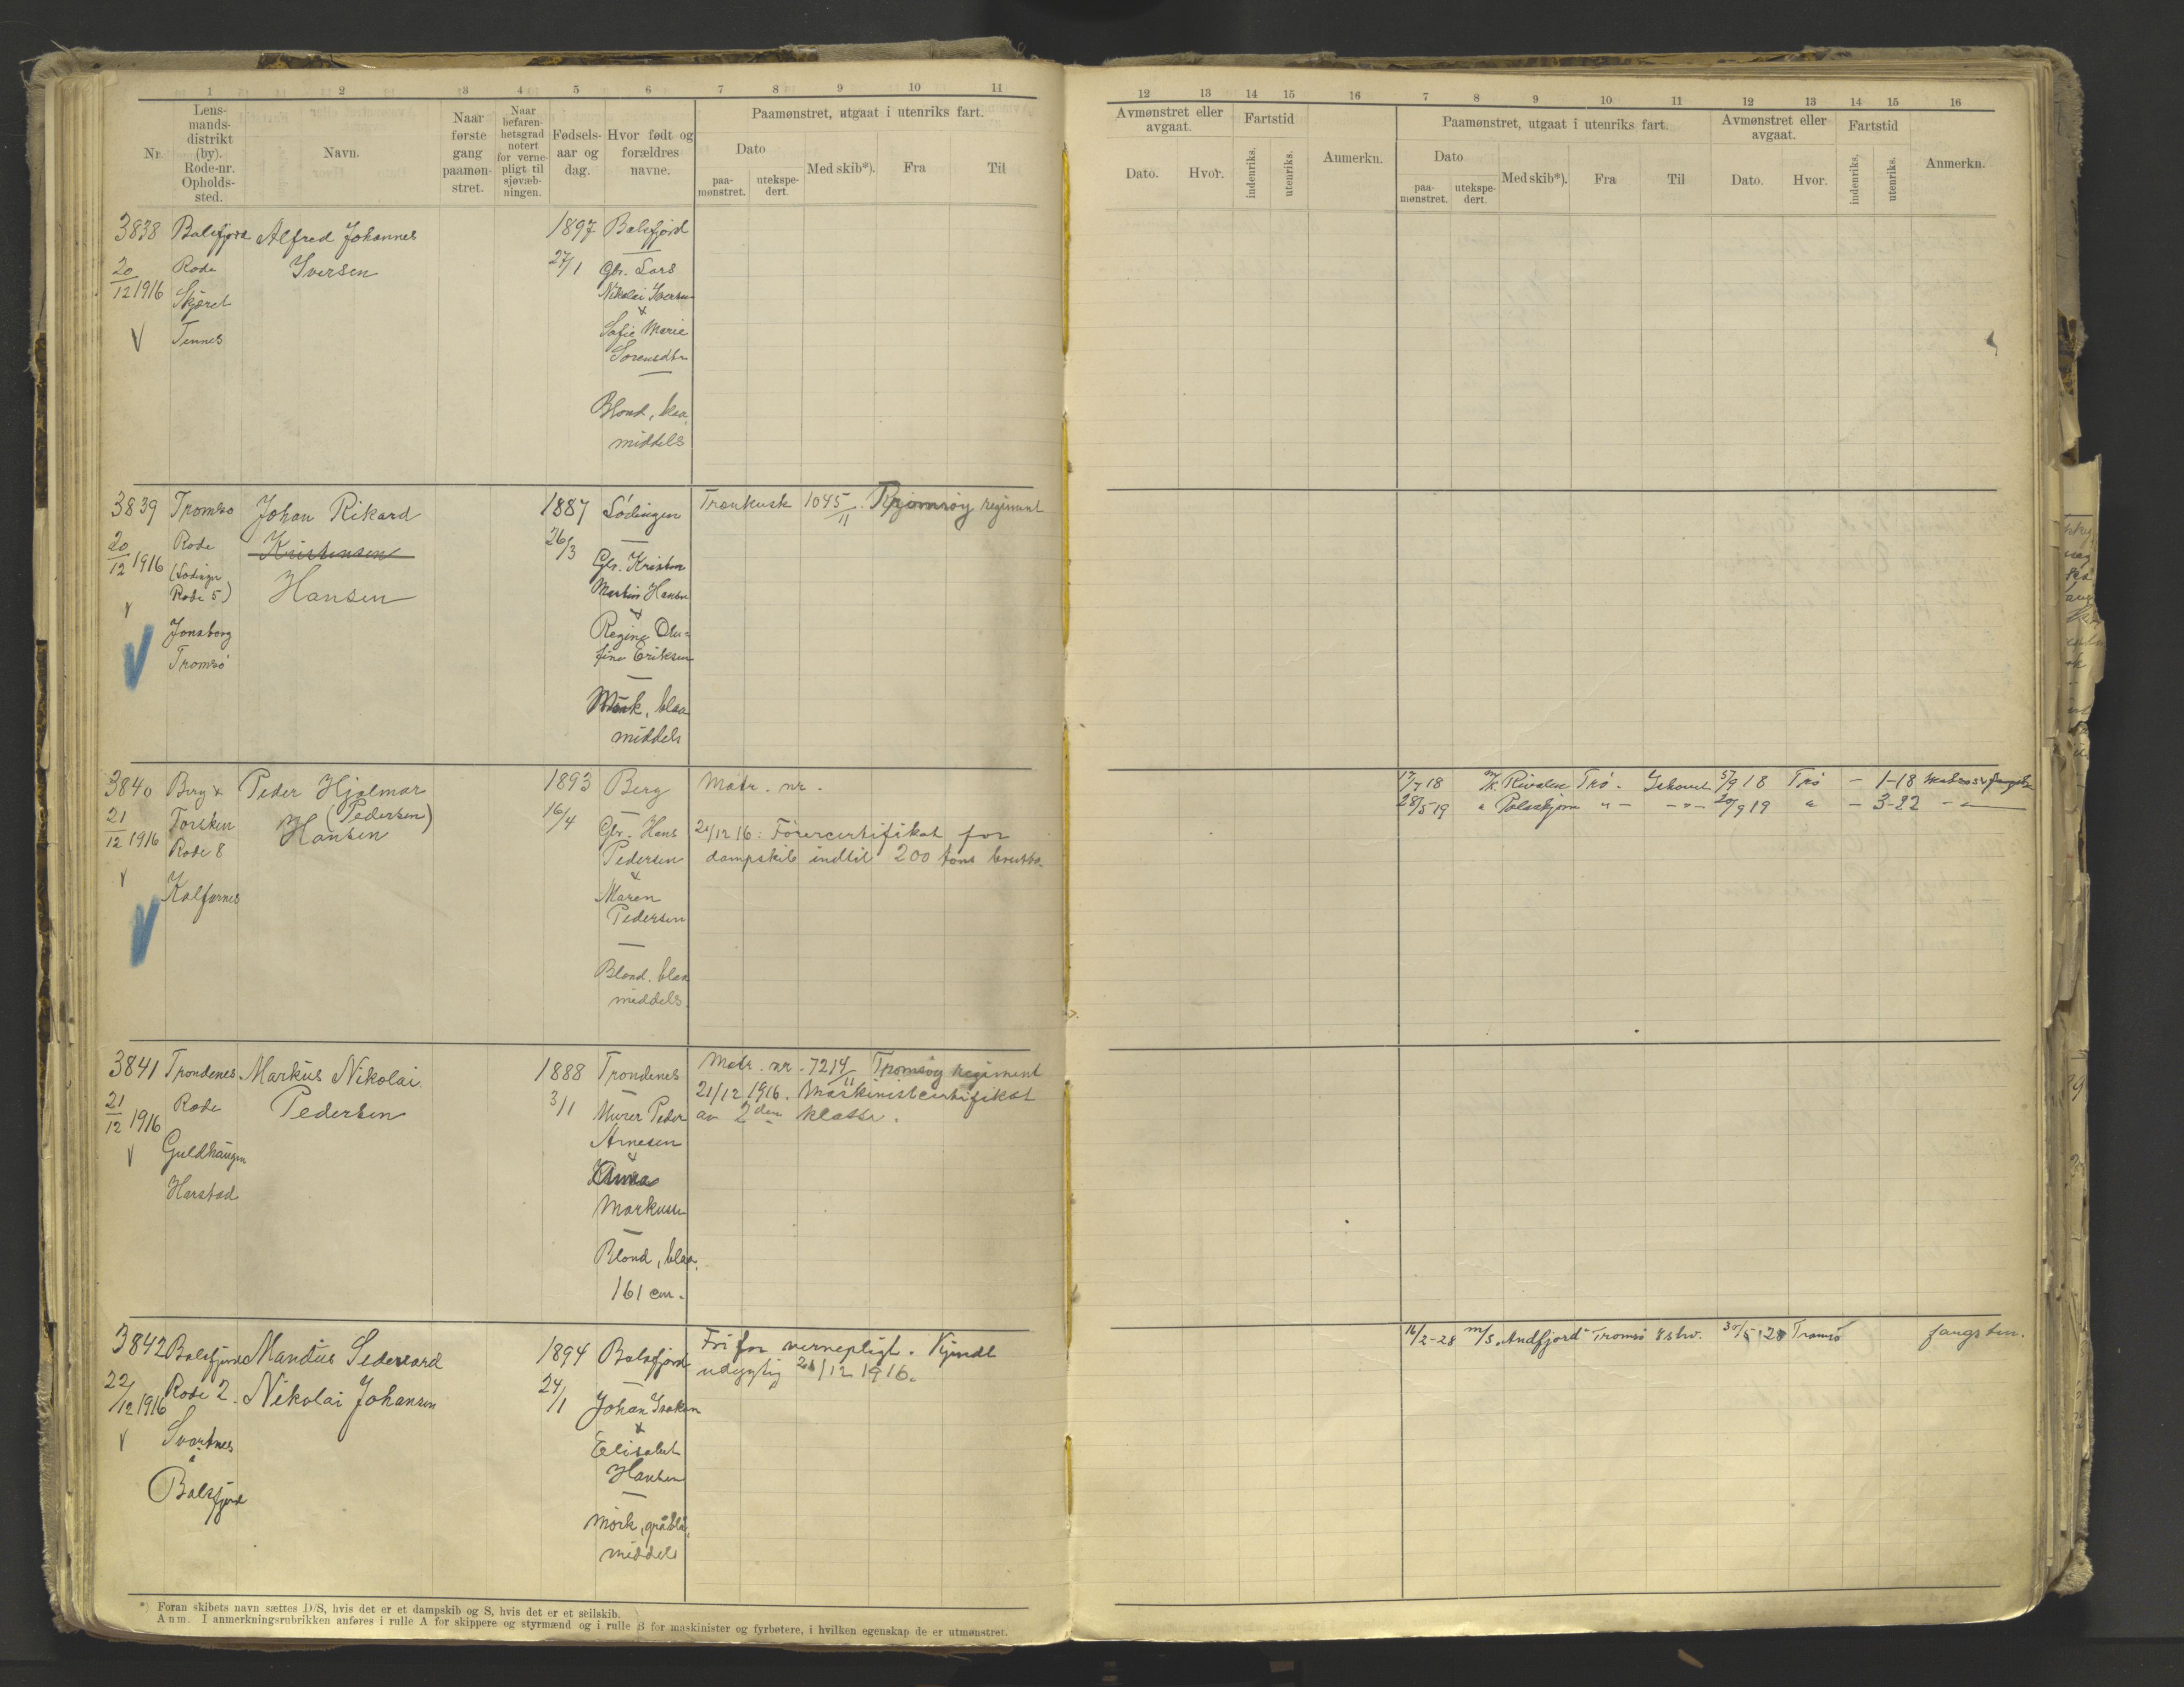 1 2 3 4 5 6 7 8 9 10 11
Nr.
Lens-
mands-
distrikt
(by).
Rode-nr.
Opholds-
sted.
Navn.
Naar
første
gang
paamøn-
stret.
Naar
befaren-
hetsgrad
notert
for verne-
pligt til
sjøvæb-
ningen.
Fødsels-
aar og
dag.
Hvor født og
forældres
navne.
Paamønstret, utgaat i utenriks fart.
Dato
paa-
mønstret.
utekspe-
dert.
Med skib*).
Fra
Til
3838 Balsfjord Alfred Johannes 1897 Balsfjord
20/12 1916 Rode Iversen 27/1 Gbr. Lars
Skjæret Nikolai Iversen
V Tennes &
Sofie Marie
Sorensdtr
Blond, blaa,
middels
3839 Tromsø Johan Rikard 1887 Lødingen Trænkusk 1045/11. Tromsøy regiment
20/12 1916 Rode Kristensen 26/3 Gbr. Kristen
(Lødingen Hansen Martin Hansen
Rode 5) &
V Jonsborg Regine Olu-
Tromsø fine Eriksen
Mørk, blaa
middels
3840 Berg & Peder Hjalmar 1893 Berg Matr. nr.
21/12 1916 Torsken (Pedersen) 16/4 Gbr. Hans 21/12 16: Førercertifikat for
Rode 8 Hansen Pedersen dampskib indtil 200 tons brutto.
V Kalfarnes &
Maren
Pedersen
Blond, blaa
middels.
3841 Trondenes Markus Nikolai 1888 Trondenes Matr. nr. 7214/11 Tromsøy regiment
21/12 1916 Rode Pedersen 3/1 Murer Peder 21/12 1916. Maskinistcertifikat
V Guldhaugen Arnesen av 2den klasse.
Harstad &
Anna
Markussen
Blond, blaa,
161 cm.
3842 Balsfjord Mandus Sedevard 1894 Balsfjord Fri for vernepligt. Kjendt
22/12 1916 Rode 2. Nikolai Johansen 24/1 Johan Isaksen udygtig 21/12 1916.
V Svartnes &
i Elisabet
Balsfjord Hansen
Mørk, gråblå,
middels
*) Foran skibets navn sættes D/S, hvis det er et dampskib og S, hvis det er et seilskib.
Anm. I anmerkningsrubrikken anføres i rulle A for skippere og styrmænd og i rulle B for maskinister og fyrbøtere, i hvilken egenskap de er utmønstret.
12 13 14 15 16 7 8 9 10 11 12 13 14 15 16
Avmønstret eller
avgaat.
Dato.
Hvor.
Fartstid
indenriks.
utenriks.
Anmerkn.
Paamønstret, utgaat i utenriks fart.
Dato
paa-
mønstret.
utekspe-
dert.
Med skib*).
Fra
Til
Avmønstret eller
avgaat.
Dato.
Hvor.
Fartstid
indenriks.
utenriks.
Anmerkn.
17/7 18 M/K. Rivalen Trø. Ishavet 5/9 18 Trø - 1-18
28/5 19 " Polarbjørn " - - " - 20/9 19 " - 3-22 - " -
16/2-28 m/s. "Andfjord" Tromsø Ishv. 30/5 28 Tromsø fangstm.